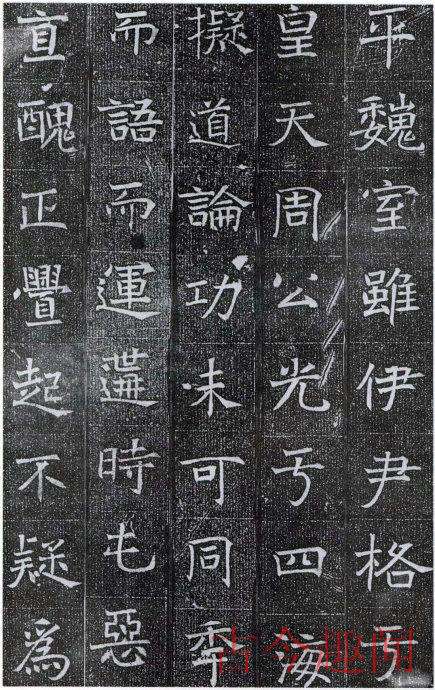 平魏室雖伊尹格于
皇天周公光亐四海
擬道論功未可同秊
而語而運遘時屯惡
直醜正舋起不疑爲
古今趣闻